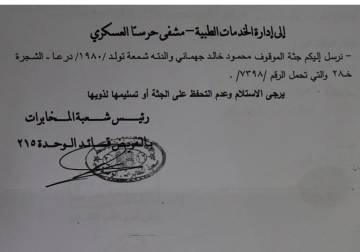 إلى إدارة الخدمات الطبية – مشفى حرستا العسكري
– نرسل إليكم جثة الموقوف محمود خالد جهماني والدته شمعة تولد /١٩٨٠/ درعا – الشجرة
خ٢٨ والتي تحمل الرقم /٧٣٩٨/.
يرجى الاستلام وعدم التحفظ على الجثة أو تسليمها لذويها
رئيس شعبة المخابرات
بالتفويض قائد الوحدة ٢١٥